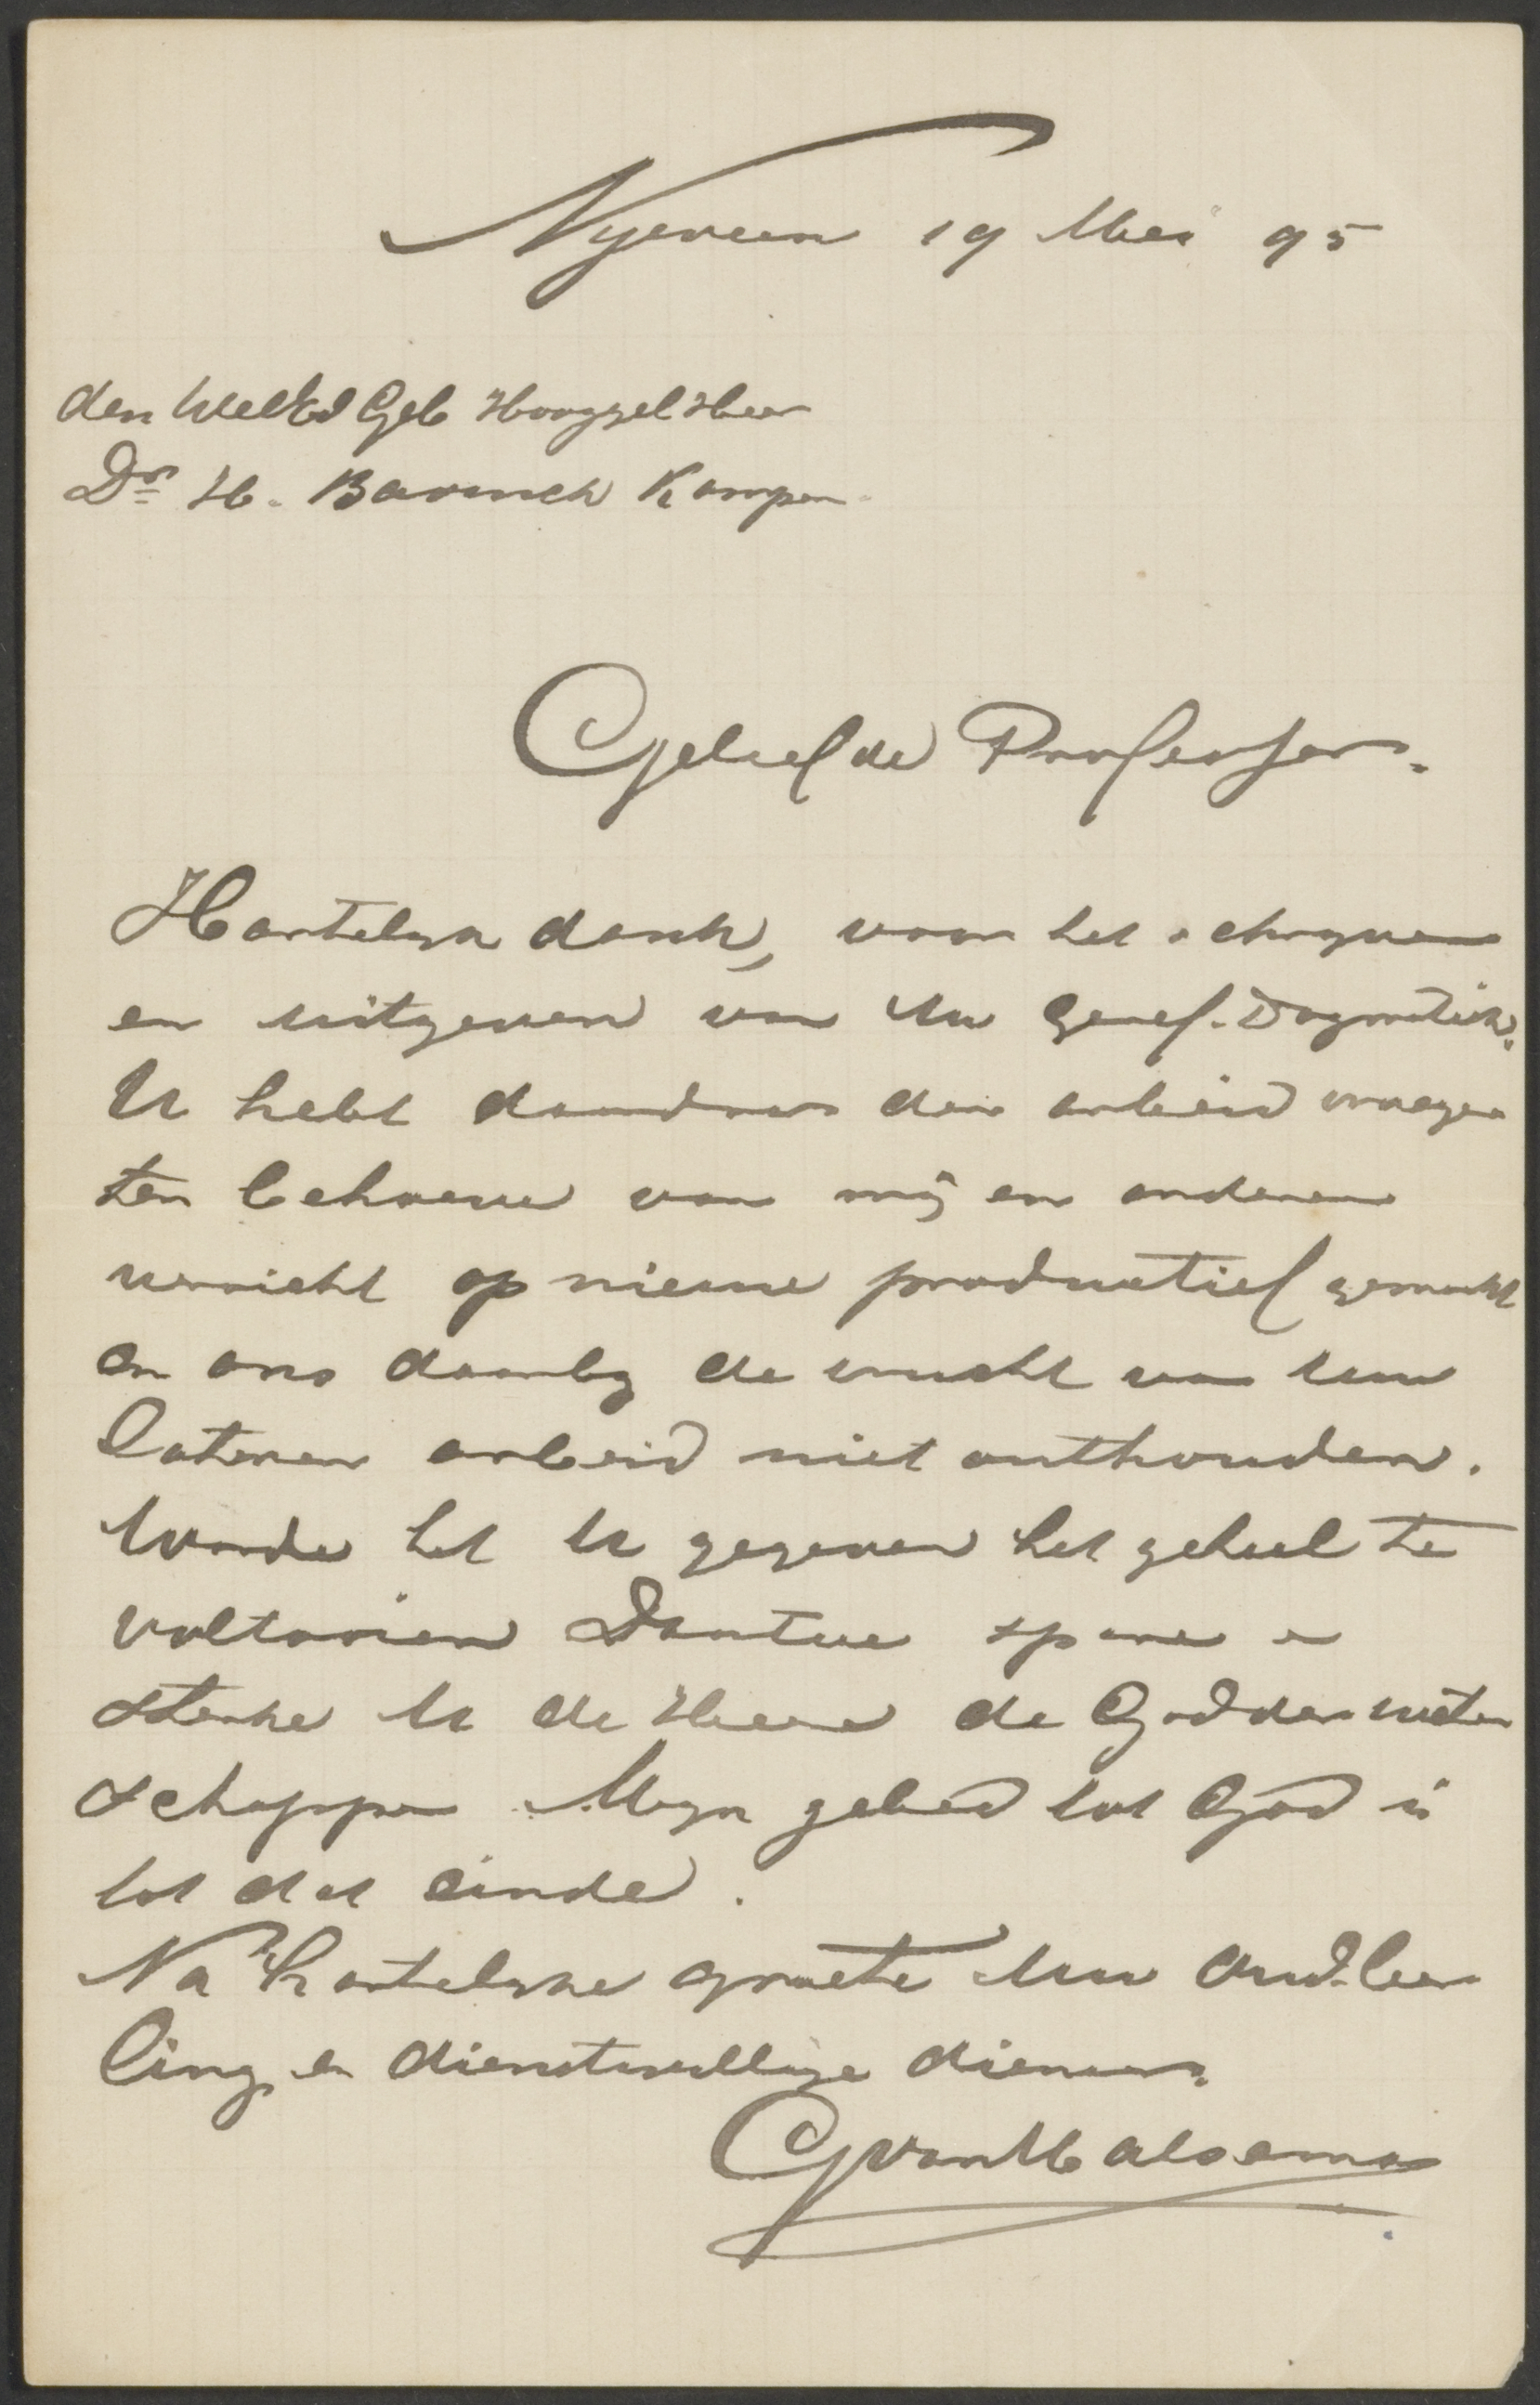 Nyeveen 19 Mei 95
den WelEd Geb Hooggel Heer
Dr H. Bavinck Kampen
Geliefde Professor.
Hartelyk dank, voor het schryven
en uitgeven van Uw Geref. Dogmatiek.
U hebt daardoor den arbeid vroeger
ten behoeve van mij en anderen
verricht op nieuw productief gemaakt
en ons daarby de vrucht van Uw
lateren arbeid niet onthouden.
Worde het U gegeven het geheel te
voltooien Daartoe spare en
sterke U de Heere de God der weten
schappen Myn gebed tot God is
tot dat einde.
Na hartelyke groete Uw Oud-leer
ling en dienstwillige dienaar.
G van Halsema